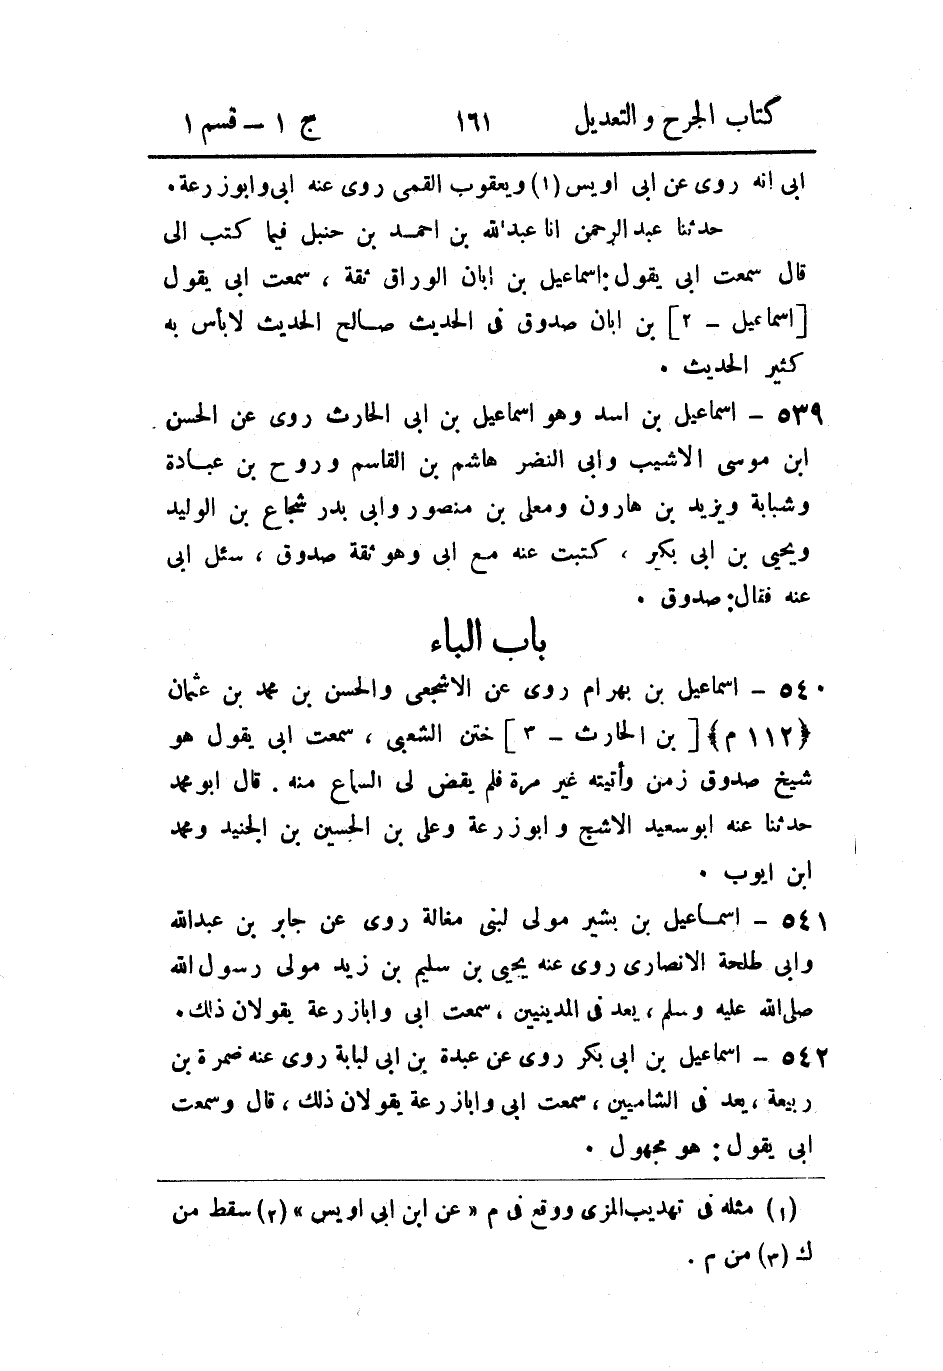 كتاب الجرح والتعديل ١٦١ ج ١ – قسم ١
ابى انه روى عن ابى اويس (١) ويعقوب القمى روى عنه ابى وابوزرعة.
حدثنا عبد الرحمن انا عبد الله بن احمد بن حنبل فيما كتب الى
قال سمعت ابى يقول: اسماعيل بن ابان الوراق ثقة ، سمعت ابى يقول
[اسماعيل – ٢] بن ابان صدوق فى الحديث صالح الحديث لابأس به
كثير الحديث .
٥٣٩ – اسماعيل بن اسد وهو اسماعيل بن ابى الحارث روى عن الحسن
ابن موسى الاشيب وابى النضر هاشم بن القاسم وروح بن عبادة
وشبابة ويزيد بن هارون ومعلى بن منصور وابى بدر شجاع بن الوليد
ويحيى بن ابى بكير ، كتبت عنه مع ابى وهو ثقة صدوق ، سئل ابى
عنه فقال: صدوق .
باب الباء
٥٤٠ – اسماعيل بن بهرام روى عن الاشجعى والحسن بن محمد بن عثمان
﴿١١٢ م﴾ [بن الحارث – ٣] ختن الشعبى ، سمعت ابى يقول هو
شيخ صدوق زمن وأتيته غير مرة فلم يقض لى السماع منه . قال ابومحمد
حدثنا عنه ابوسعيد الاشج وابوزرعة وعلى بن الحسين بن الجنيد ومحمد
ابن ايوب .
٥٤١ – اسماعيل بن بشير مولى لبنى مغالة روى عن جابر بن عبدالله
وابى طلحة الانصارى روى عنه يحيى بن سليم بن زيد مولى رسول الله
صلى الله عليه وسلم ، يعد فى المدينيين ، سمعت ابى وابازرعة يقولان ذلك .
٥٤٢ – اسماعيل بن ابى بكر روى عن عبدة بن ابى لبابة روى عنه ضمرة بن
ربيعة ، يعد فى الشاميين ، سمعت ابى وابازرعة يقولان ذلك ، قال وسمعت
ابى يقول: هو مجهول .
(١) مثله فى تهذيب المزى ووقع فى م « عن ابن ابى اويس » (٢) سقط من
ك (٣) من م .